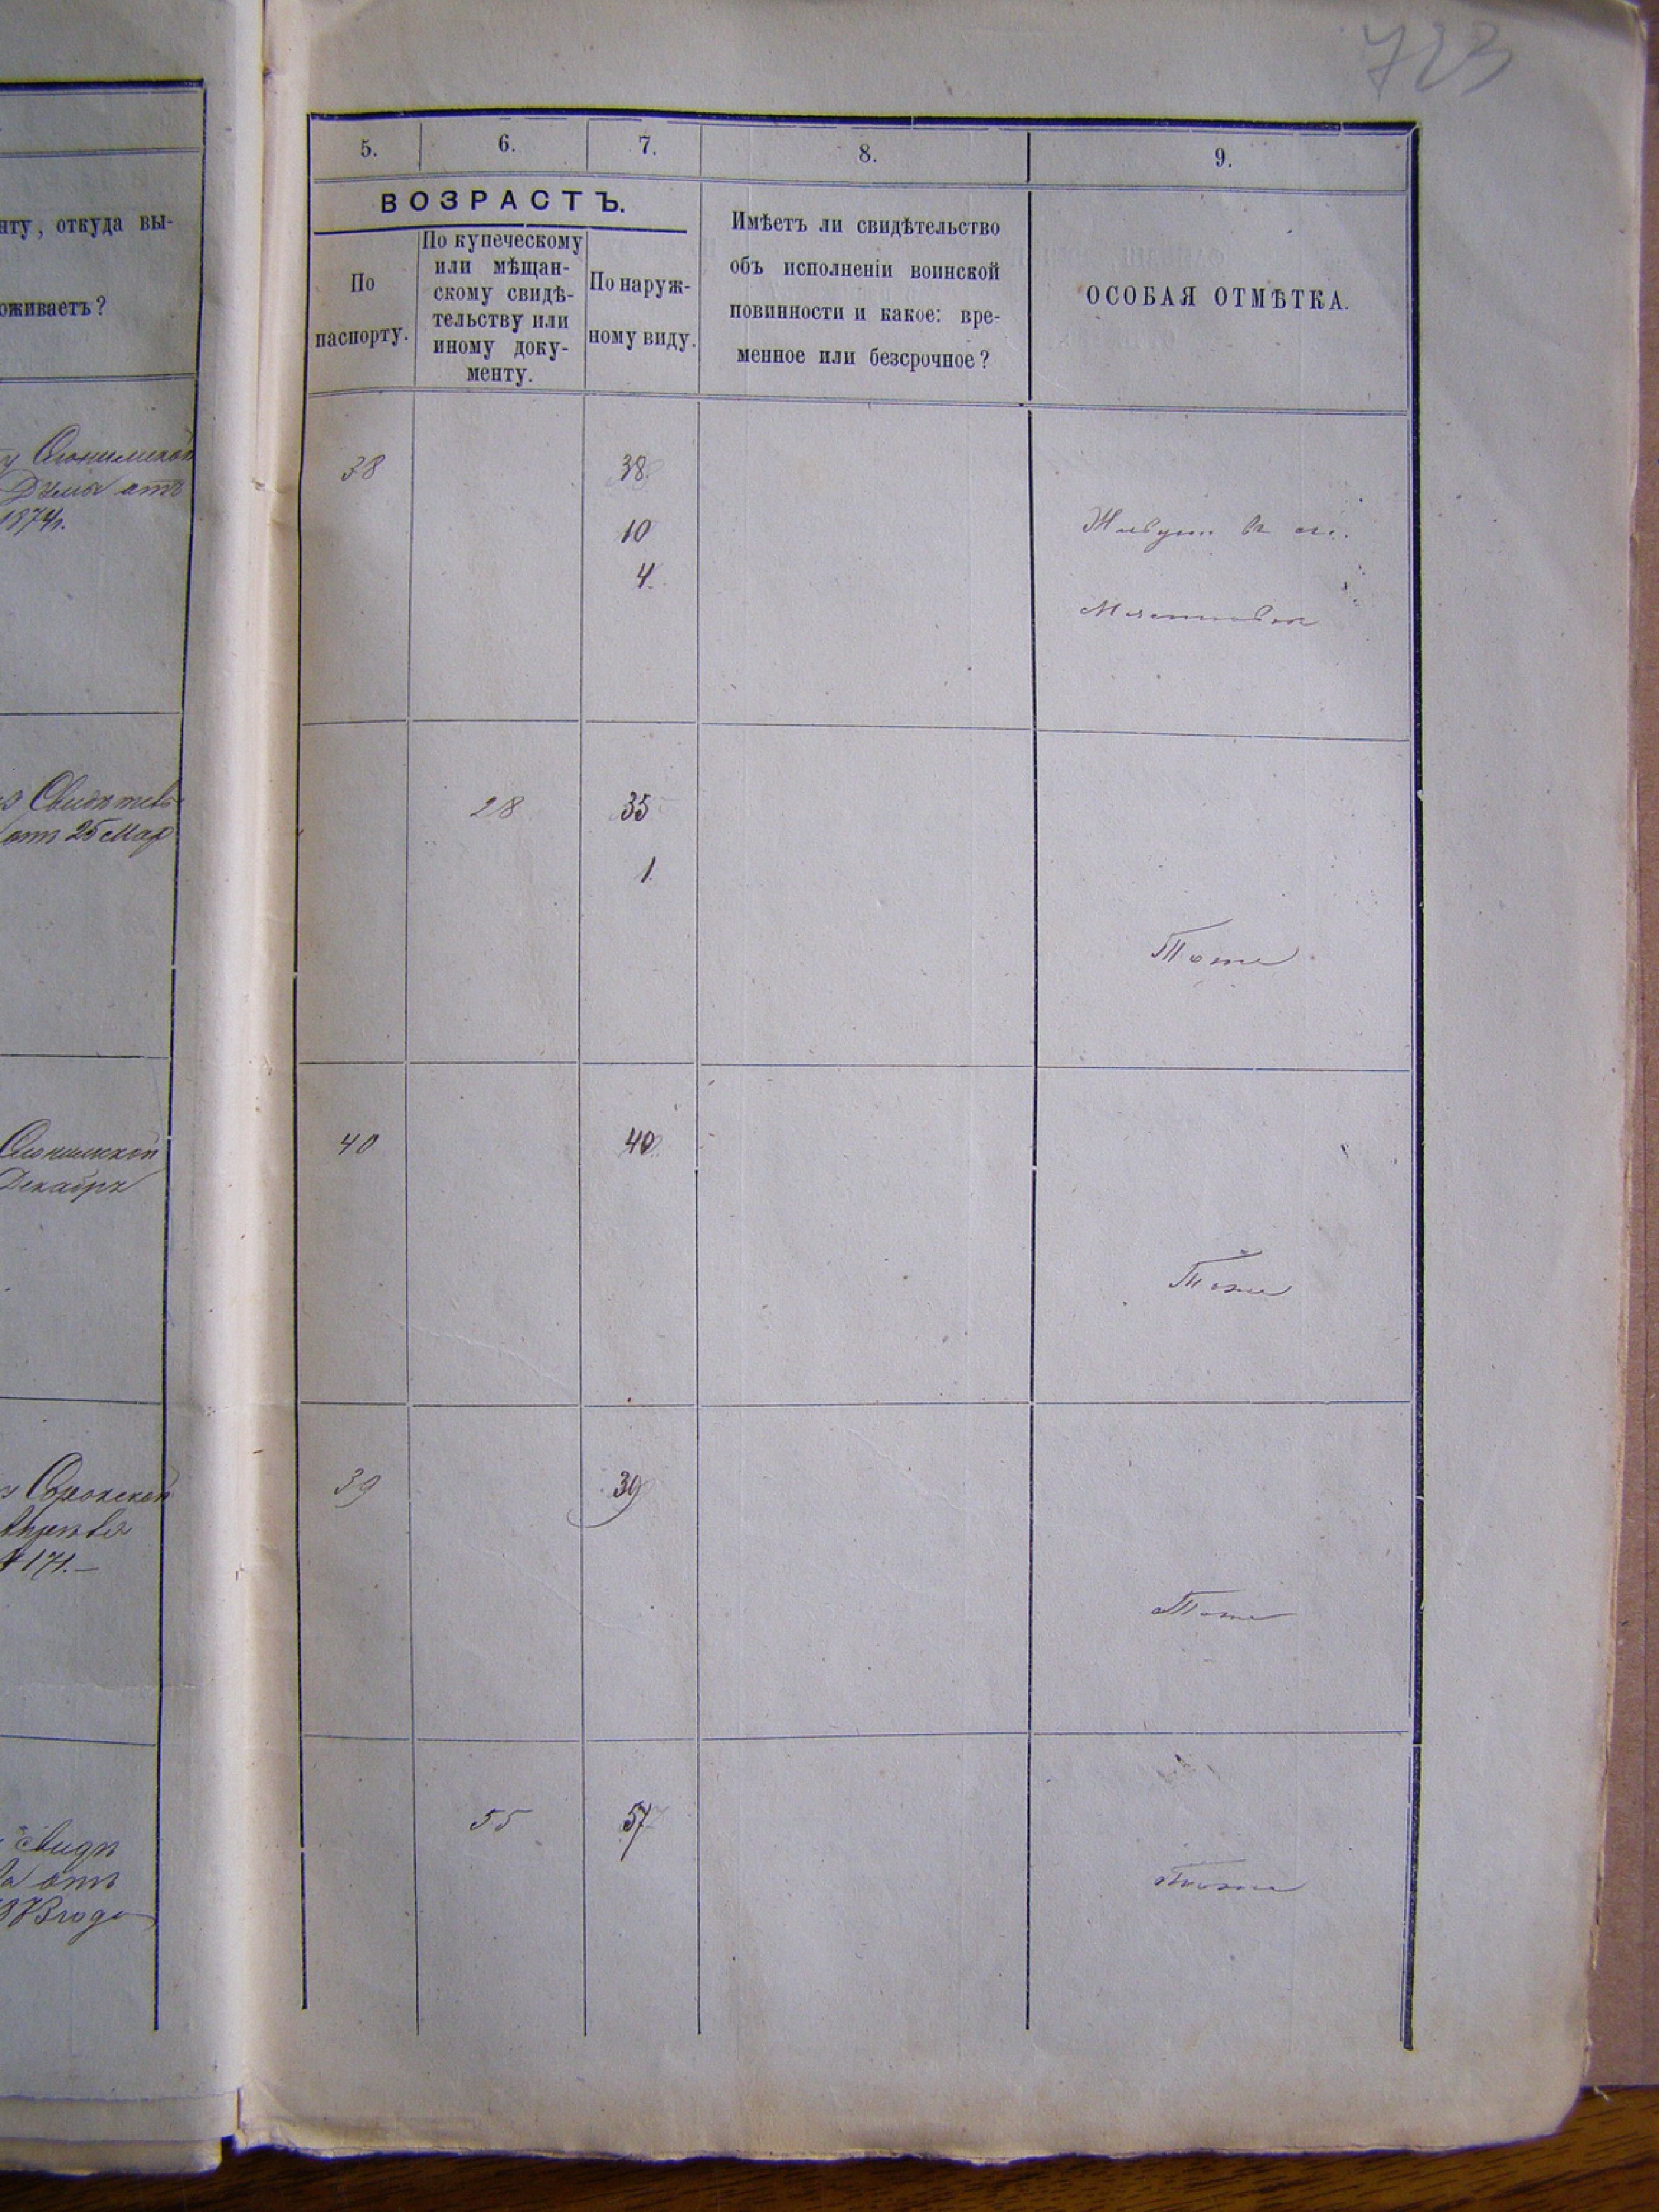 723
нту, откуда вы-
оживаетъ?
Думы отъ
1874г.
отъ 25 Мар
Декабря
171.–
отъ
5. 6. 7. 8. 9.
ВОЗРАСТЪ.
По
паспорту.
По купеческому
или мѣщан-
скому свидѣ-
тельству или
иному доку-
менту.
По наруж-
ному виду.
Имѣетъ ли свидѣтельство
объ исполненіи воинской
повинности и какое: вре-
менное или безсрочное?
ОСОБАЯ ОТМѢТКА.
38 38
10
4.
Живутъ въ м.
28 35
1
Тоже
40 40
Тоже
39 39
Тоже
55 57
Тоже